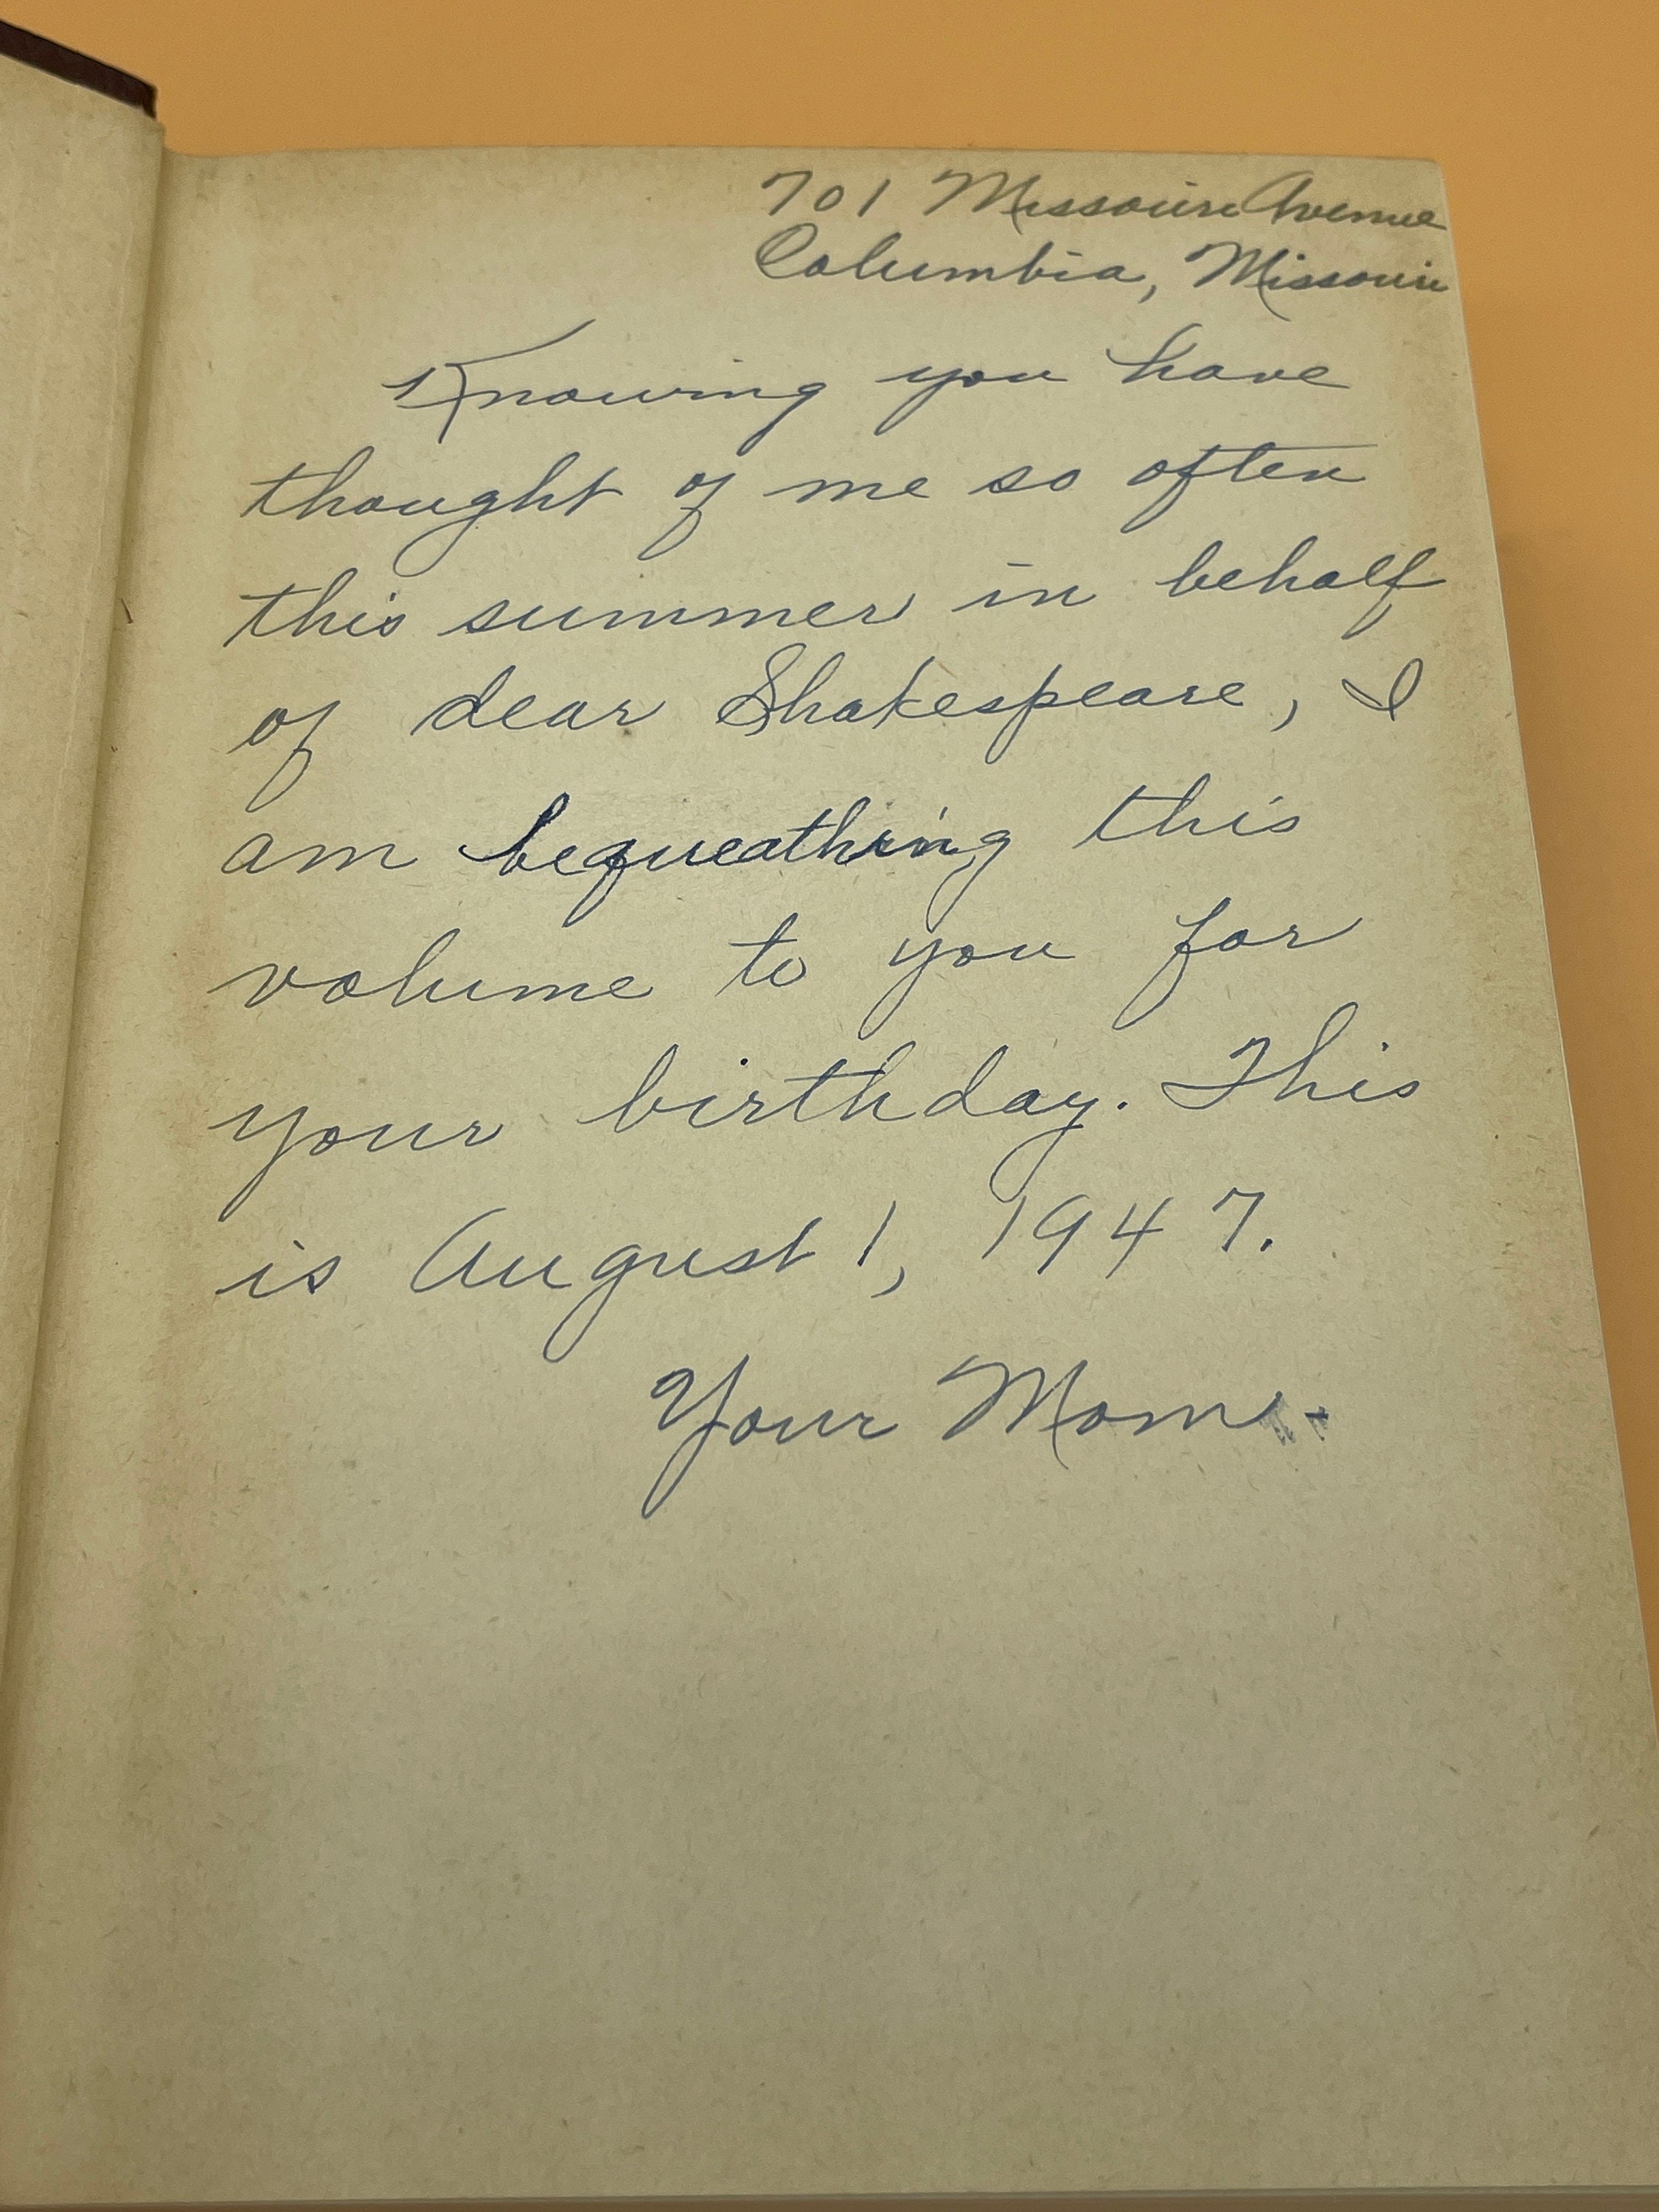 701 Missouri Avenue
Columbia, Missouri
Knowing you have
thought of me so often
this summer in behalf
of dear Shakespeare, I
am bequeathing this
volume to you for
your birthday. This
is August 1, 1947.
Your Mom -